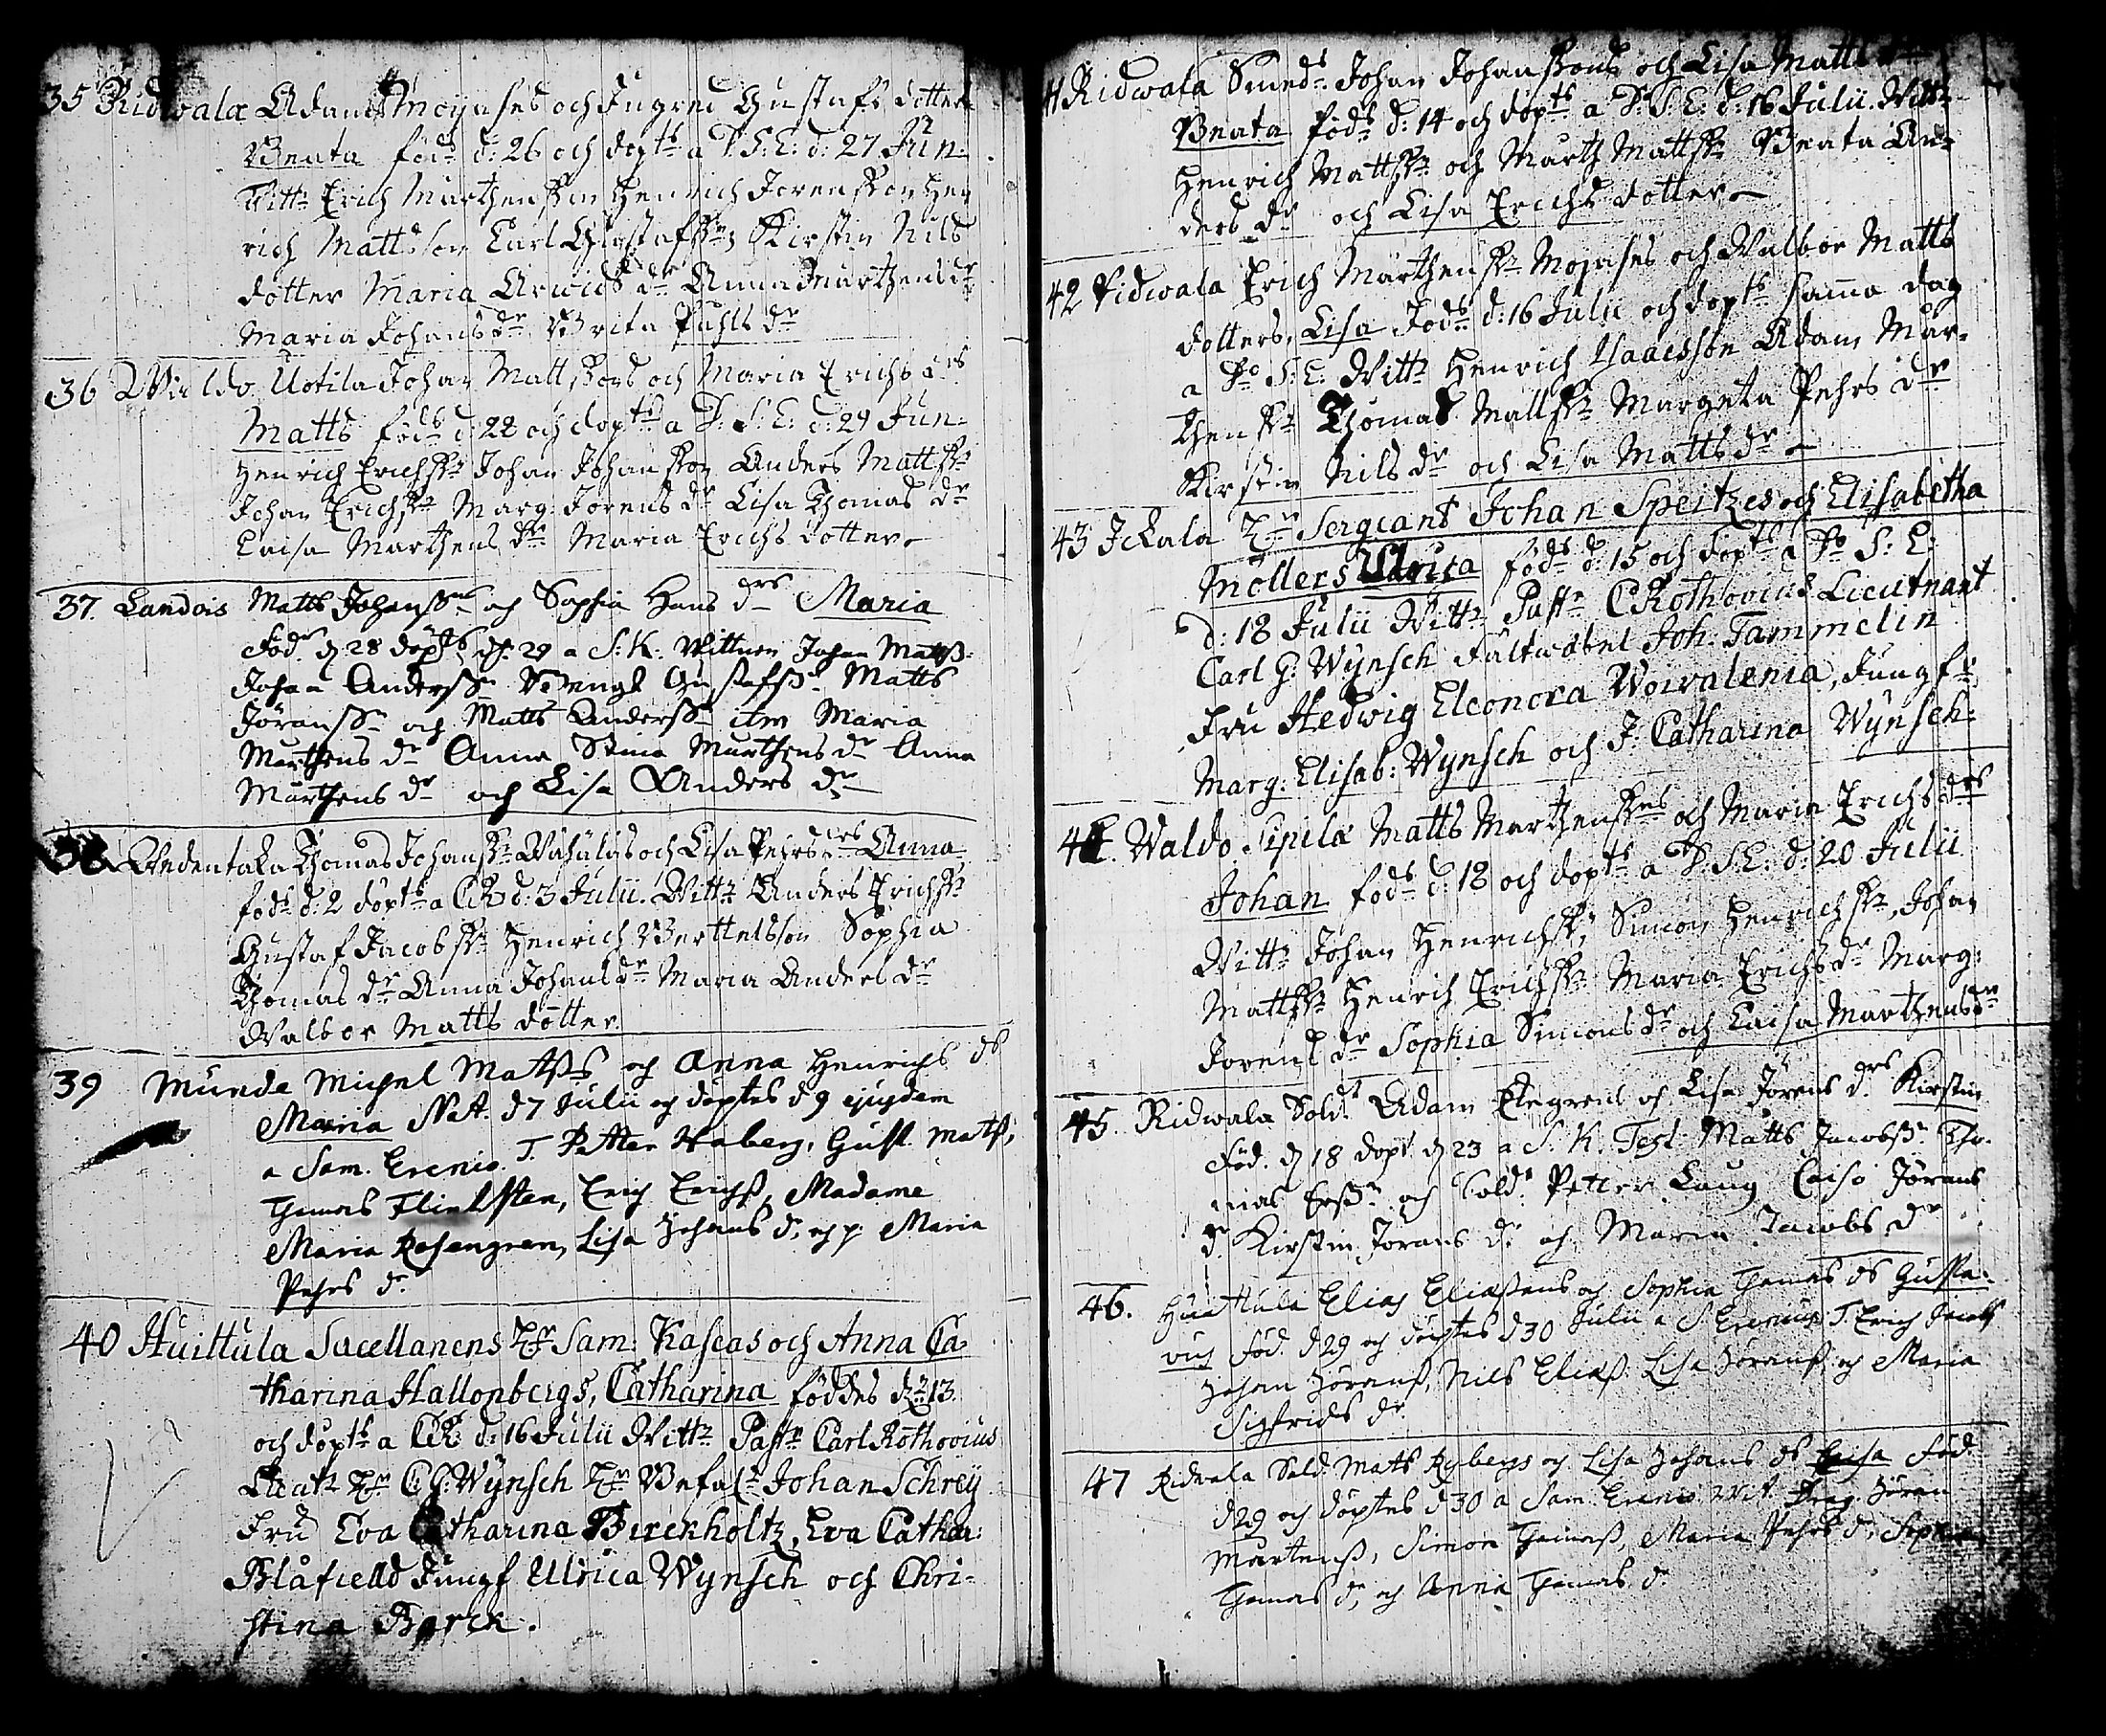 35 Ridwala Adam Mojases och Ingred Gustafs dotters
Beata föd: d: 26 och dopts a D: S: E: d: 27 Jun:
Vittn Erich Marthensson Henrich Jorensson Hen
rich Mattsson Carl Gustafss: Kirstin Nils
dotter Maria dr Anna Marthens dr
Maria Johans dr Brita Påhls dr
36 Waldo Uotila Johan Mattssons och Maria Erichs drs
Matts föds d: 28 och dopts a D: S: E: d: 29 Jun:
Henrich Erichssn Johan Johansson Anders Mattssn
Johan Erichssn Marg: Jorens dr Lisa Thomas dr
Caisa Marthens dr Maria Erichs dotter
37. Landois Matts Johanssns och Sophia Hans drs Maria
Föd d 28 döpts d. 29 a S. K. Vittnen Johan Mattss.
Johan Anderssn Bengt Gustafss Matts
Jöranssn och Matts Anderss itm Maria
Marthens dr Anna Stina Marthens dr Anna
Marthens dr och Lisa Anders dr
38 Thomas Johanssn och Lisa Pehrs drs Anna
föds d: 2 döpts a CR d: 3 Julii. Wittn Anders Erichssn
Gustaf Jacobssn Henrich Berttelsson Sophia
Thomas dr Anna Johans dr Maria Anders dr
Walbor Matts dotter.
39 Munde Michel Matss och Anna Henrichs ds
Maria Nat. d 7 Julii och döptes d 9 ejusdem
a Sam. Erenio. T. Petter Haberg, Gust. Matss,
Thomas Flinksten, Erich Erichss, Madame
Maria Rosengren, Lisa Johans d. och p. Maria
Pehrs dr
40 Huittula Sacellanens Hr Sam: Kaseas och Anna Ca-
tharina Hallonbergs, Catharina föddes dn 13.
och dopts a CR: d: 16 Julii Wittn Pastr Carl Rothovius
Lieutn Hr C. G: Wynsch Hr Befaln Johan Schrey
Fru Eva Catharina Birckholtz, Eva Cathar:
Blåfield Jungf Ulrica Wynsch och Chri-
stina Barck.
41 Ridwala Smeds Johan Johanssons och Lisa Matts
Beata föds d: 14 och dopts a D: S: E: d: 16 Julii. Wittn
Henrich Mattssn och Marth Mattssn Beata An-
ders dr och Lisa Erichs dotter
42 Ridwala Erich Marthenssn Mojases och Walbor Matts
dotters, Lisa Föds d: 16 Julii och dopts samma dag
a Do S: E: Wittn Henrich Isaacsson Adam Mar-
thenssn Thomas Mattssn Margeta Pehrs dr
Kirstin Nils dr och Lisa Matts dr
43 Ickala Hr Sergeant Johan Speitzes och Elisabetha
Möllers Ulrica föds d: 15 och dopts a Do S: E:
d: 18 Julii Wittn Pastr C Rothovius Lieutnant
Carl G: Wynsch Fältwäbel Joh: Tammelin
Fru Hedwig Eleonora Woivalenia, Jungfr
Marg: Elisab: Wynsch och J: Catharina Wynsch.
44. Waldo Sipila Matts Marthenssns och Maria Erichs drs
Johan föds d: 18 och dopts a D: S. E: d: 20 Julii
Wittn Johan Henrichss, Simon Henrichssn, Johan
Mattssn Henrich Erichssn Maria Erichs dr Marg:
Jorens dr Sophia Simons dr och Caisa Marthens dr
45. Ridwala Sold. Adam Elegrens och Lisa Jörens drs Kirstin
Föd. d 18 dopt d 23 a S. K. Test. Matts Jacobss Tho-
mas Erss och Sold. Petter Laug Caisa Jörans
dr Kirstin Jörans dr och Maria Jacobs dr
46. Huittula Elias Eliassens och Sophia Thomas ds Gusta-
vus föd. d 29 och döptes d 30 Julii a S Erenius. T. Erich
Johan Jöranss, Nils Eliass, Lisa Jöranss, och Maria
Sigfrids dr
47 Ridvala Sold. Matts Rybergs och Lisa Johans ds Caisa föd.
d 29 och döptes d 30 a Sam. Erenio Wit. Drag. Jöran
Martenss, Simon Thomass, Maria Pehrs dr, Sophia
Thomas dr, och Anna Thomas dr